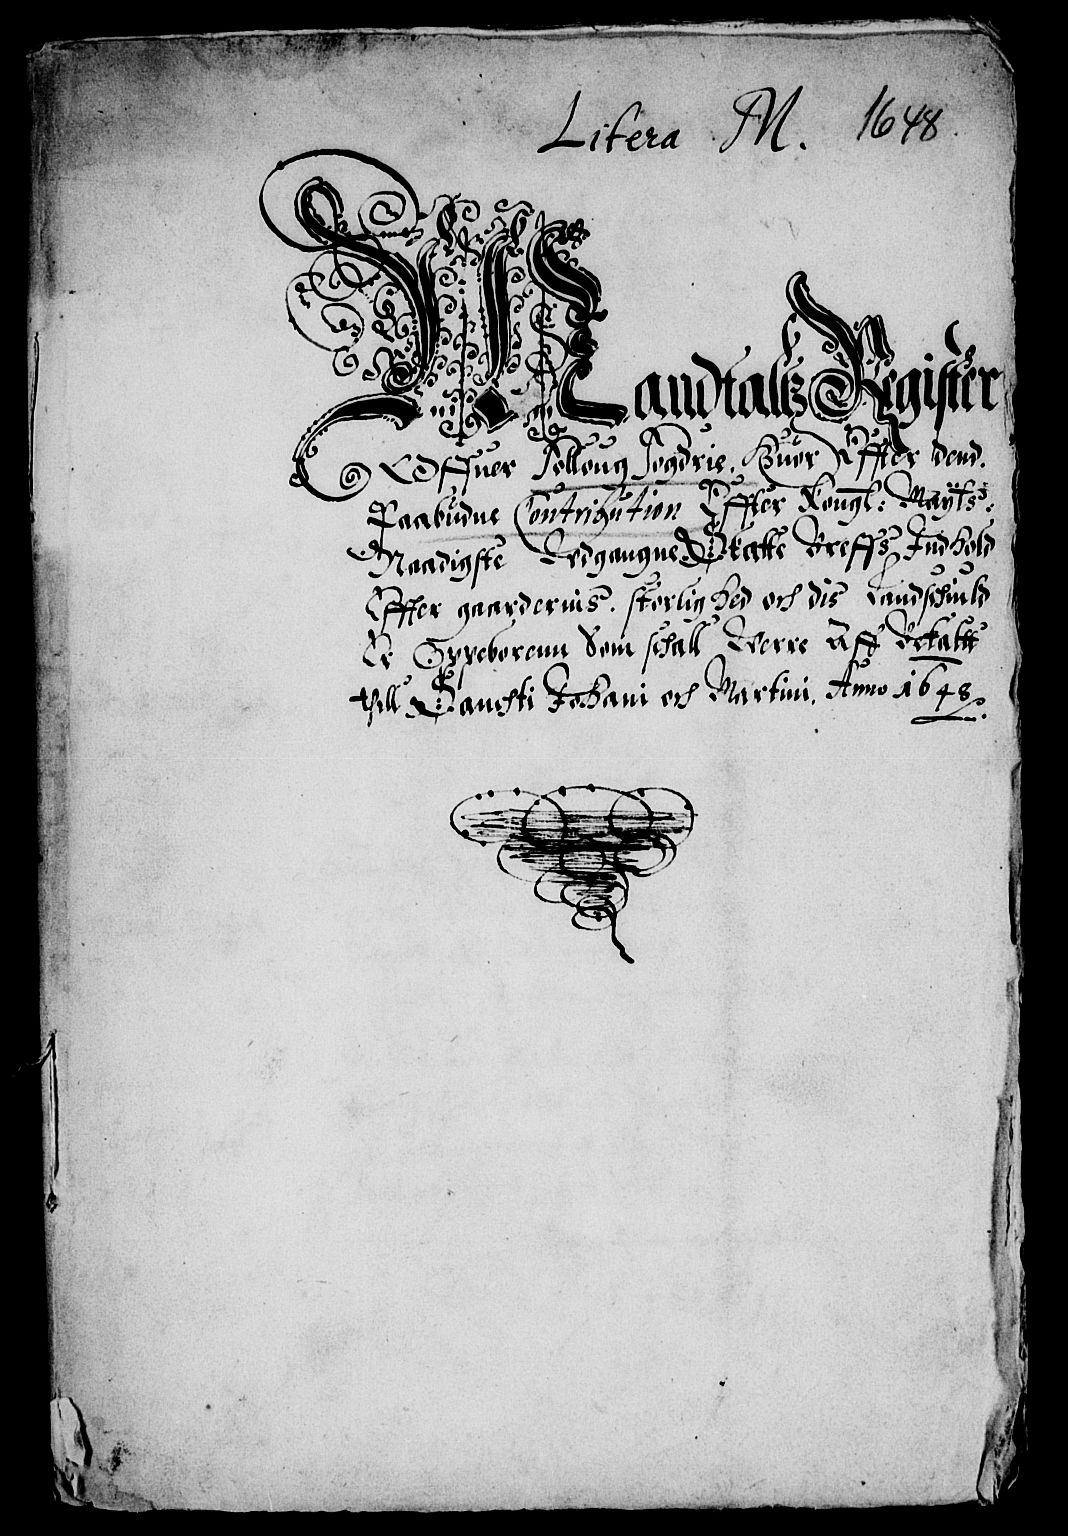 Litera M. 1648
Mandtaltz Register
Offuer Folloug fogdrie. Huor Effter dend.
Paabudne Contribution Effter Kongl: Maÿts:
Naadigste Vdgangne Skatte breffs Indhold
Effter gaardernis. størlighed och dis Landschuld
Er Oppeborenn Som schall Verre Aff betaltt
thill Sancti Johani och Martini. Anno 1648.